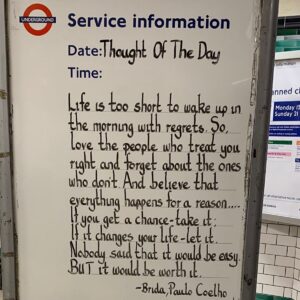 UNDERGROUND
Service information
Date: Thought Of The Day
Time:
Life is too short to wake up in
the morning with regrets. So,
love the people who treat you
right and forget about the ones
who don't. And believe that
everything happens for a reason.....
If you get a chance-take it;
If it changes your life-let it.
Nobody said that it would be easy.
BUT it would be worth it.
-Brida, Paulo Coelho
nned c
Monday 1
Sunday 31